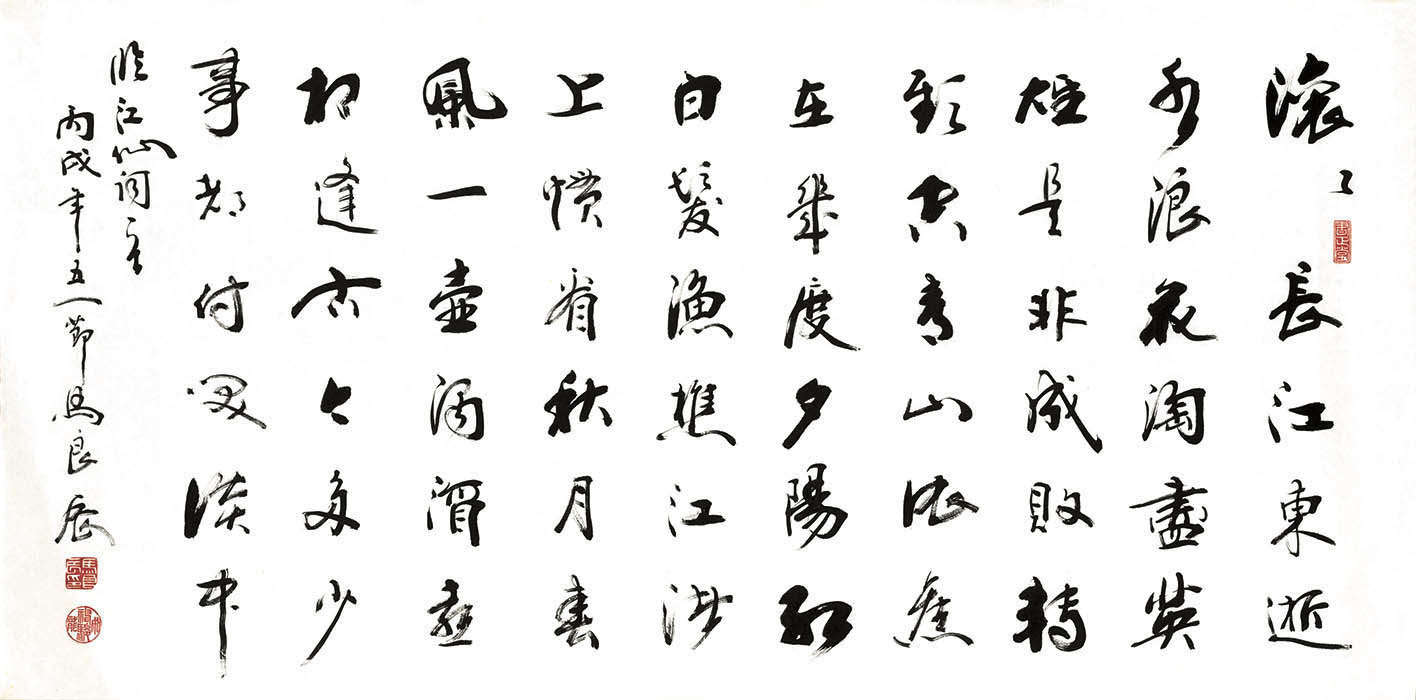 滚々長江東逝
水浪花淘盡英
雄是非成敗轉
頭空青山依舊
在幾度夕陽紅
白髮漁樵江渚
上慣看秋月春
風一壺濁酒喜
相逢古今多少
事都付咲談中
臨江仙詞一首
丙戌年五一節馬良